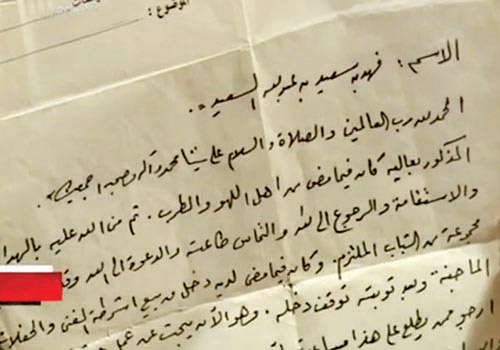 الموضوع:
الاسم: فهد بن سعيد بن عبد الله السعيد.
الحمد لله رب العالمين والصلاة والسلام على نبينا محمد وآله وصحبه اجمعين.
المذكور بعاليه كان فيما مضى من اهل اللهو والطرب. ثم من الله عليه بالهدا
والاستقامة والرجوع الى الله والتماس طاعته والدعوة الى الله
مجموعة من الشباب الملتزم. وكان فيما مضى لديه دخل من بيع اشرطة الفن والحفلات
الماجنة وبعد توبته توقف دخله. وهو الآن يبحث عن عمل
ارجو ممن يطلع على هذا